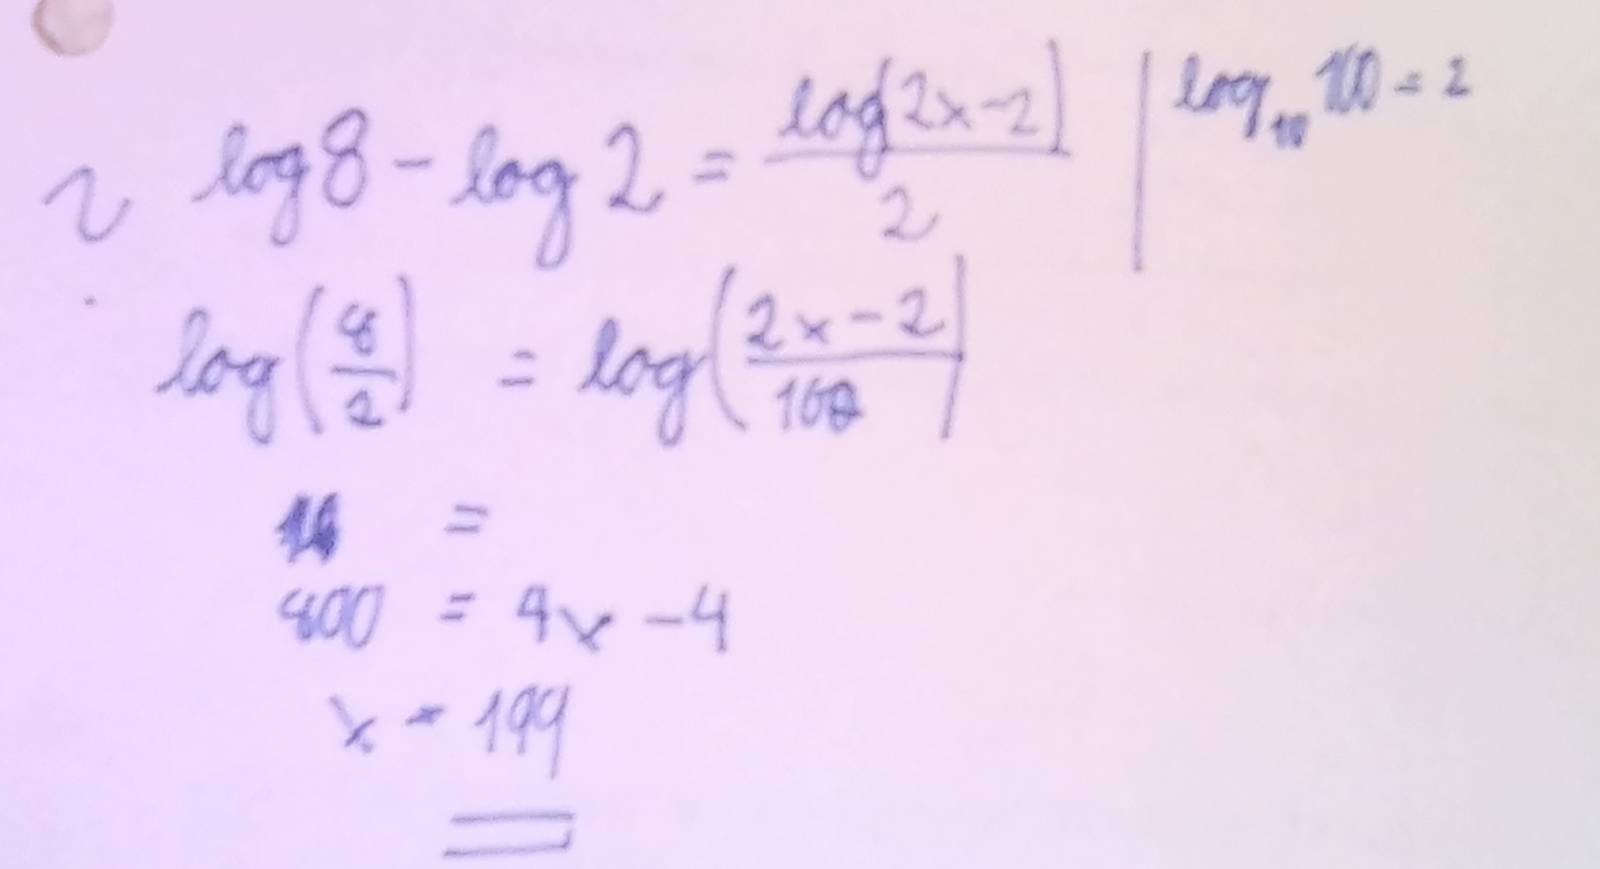 2 log 8 - log 2 = log(2x-2) / 2 | log₁₀ 100 = 2
log(8/2) = log((2x-2)/100)
=
800 = 4x - 4
x = 199